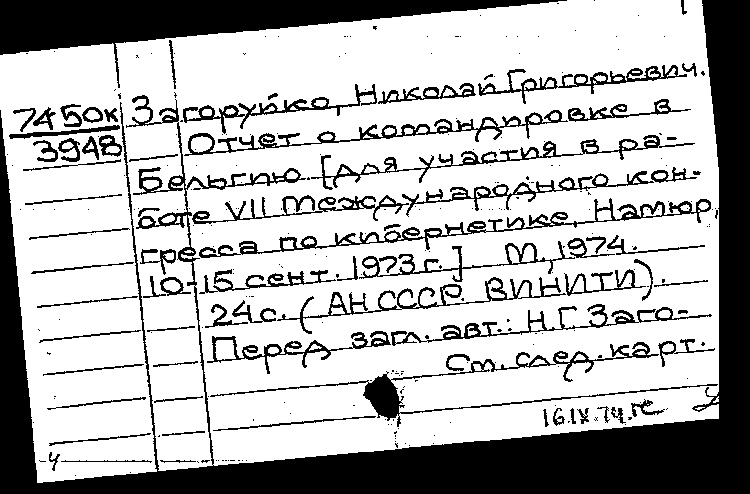 7450к
3948
Загоруйко, Николай Григорьевич.
Отчет о командировке в
Бельгию [для участия в ра-
боте VII Международного кон-
гресса по кибернетике, Намюр,
10-15 сент. 1973 г.] М., 1974.
24 с. (АН СССР. ВИНИТИ).
Перед загл. авт.: Н.Г. Заго-
См. след. карт.
16.IX.74.